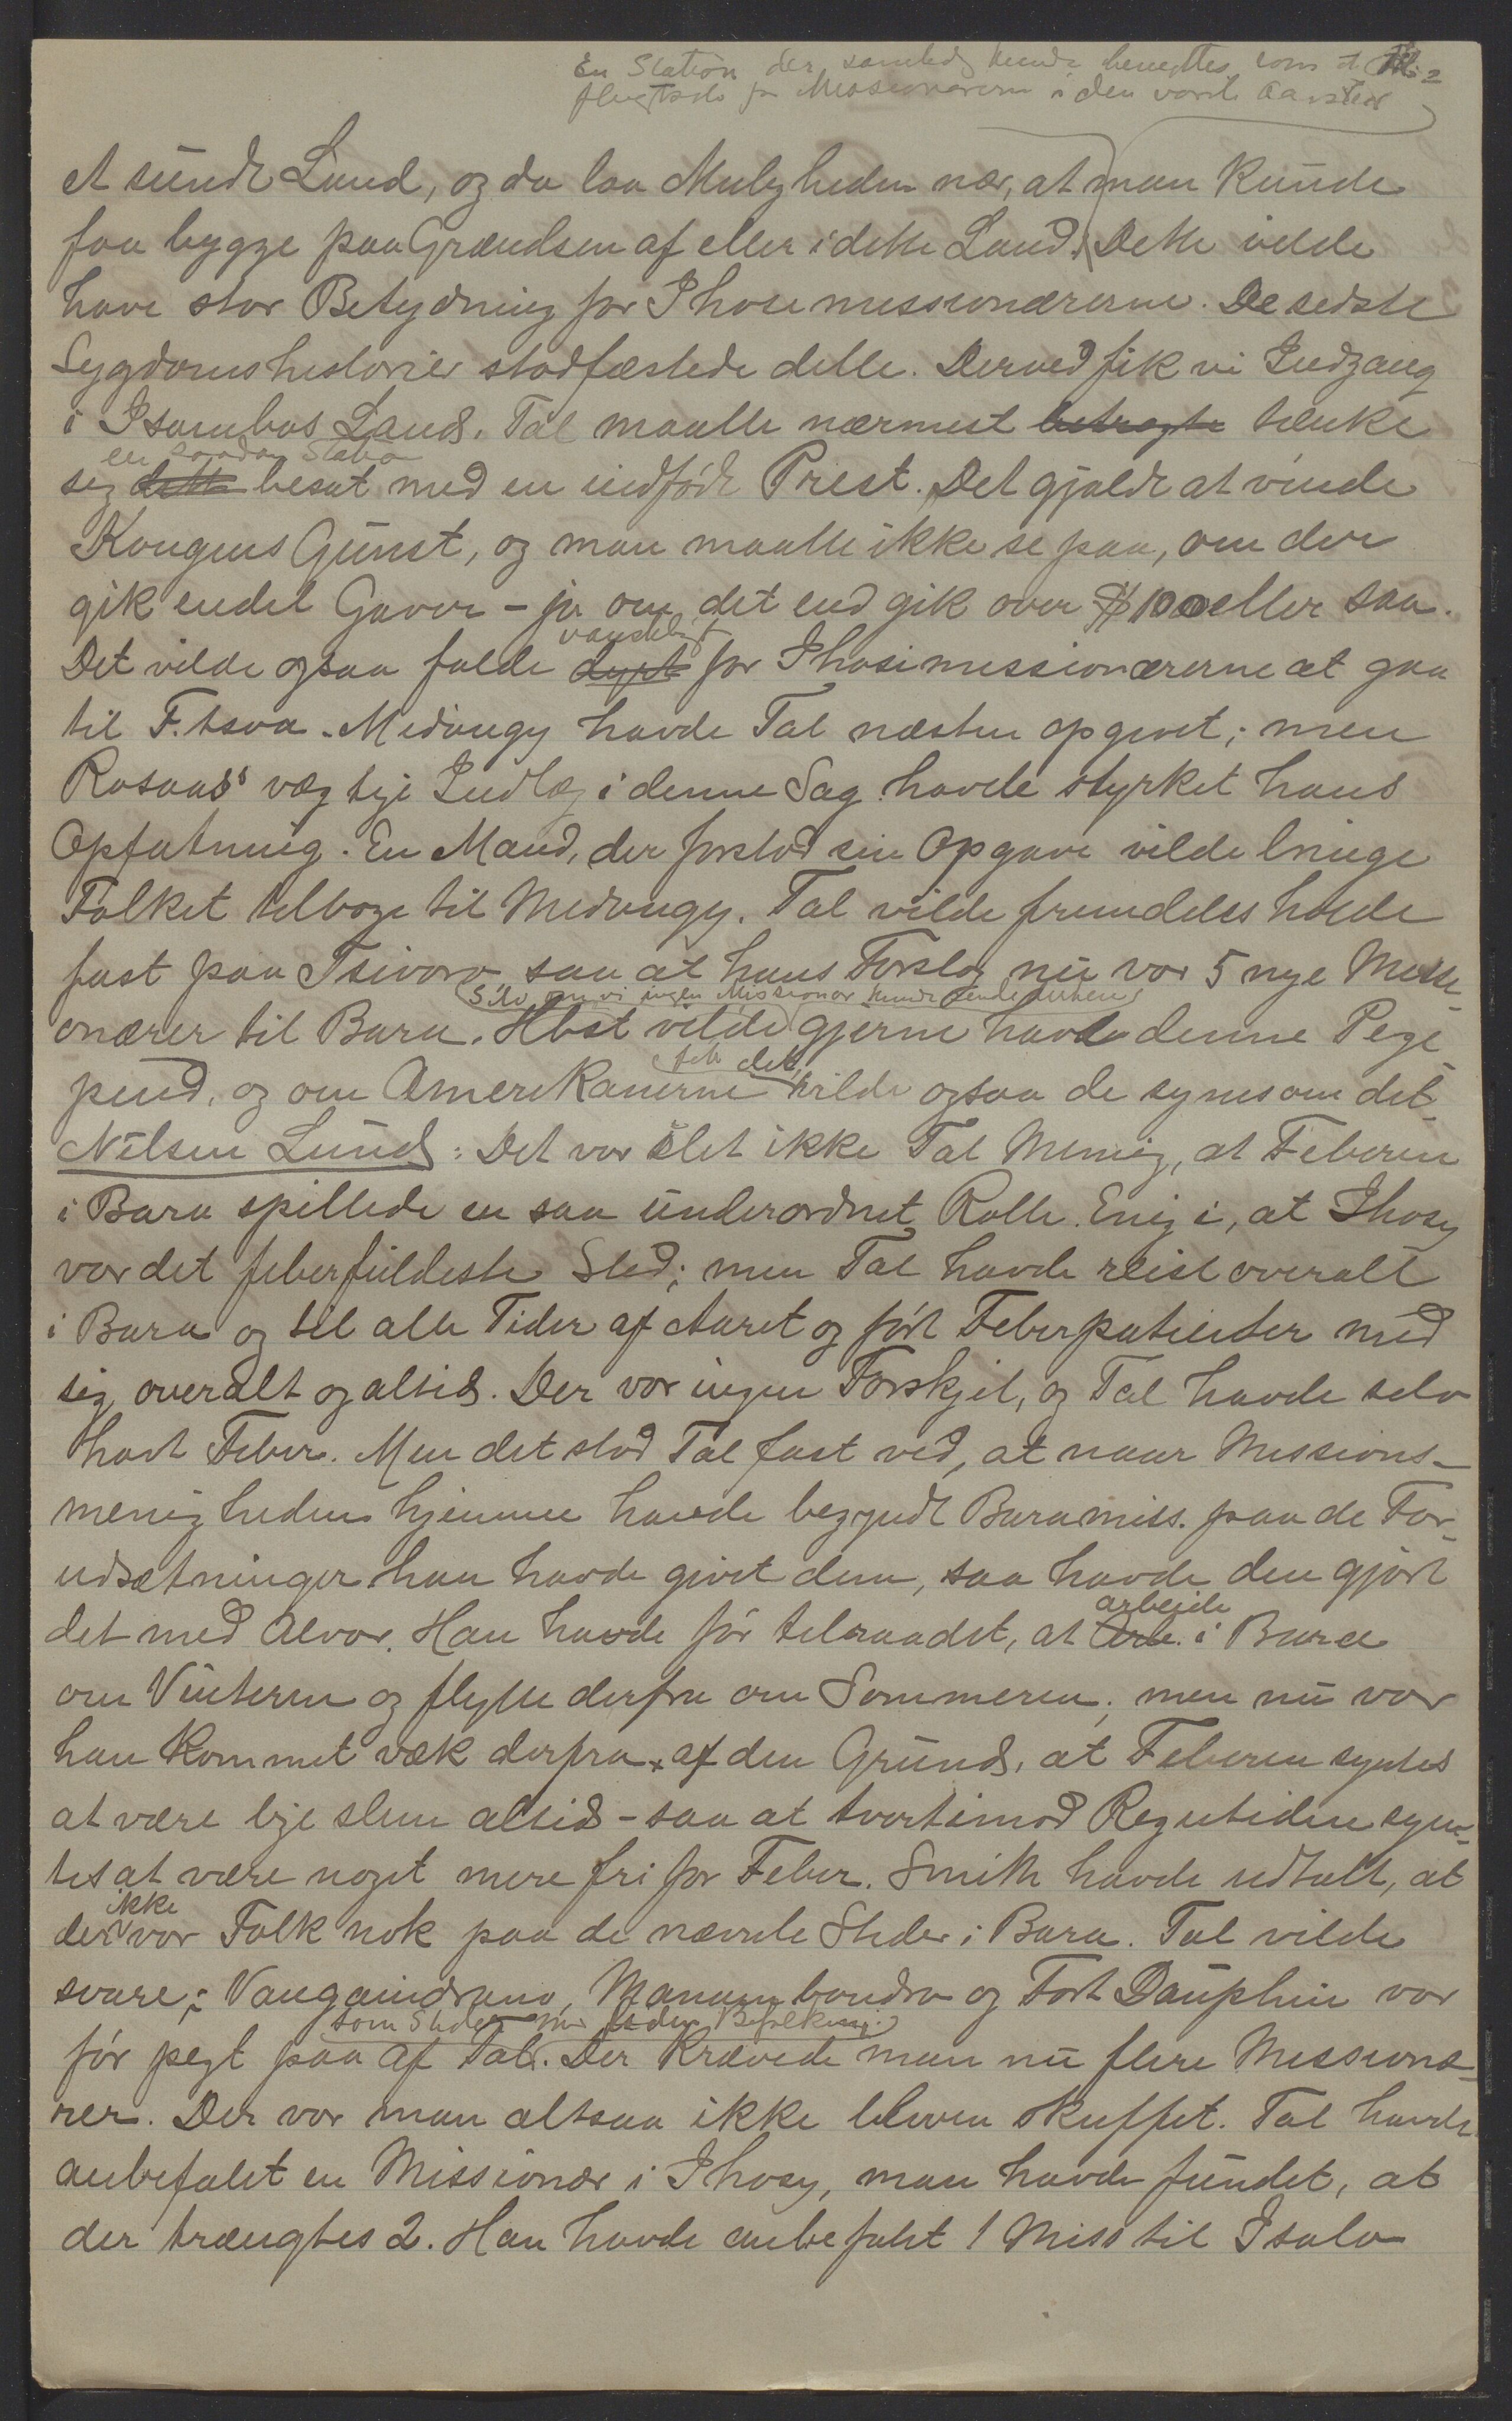 En Station der samtidig kunde benyttes som et Til-
flugtssted for Missionærerne i den varste Aarstid
et sundt Land, og da laa Muligheden nær, at man kunde
faa bygge paa Grændsen af eller i dette Land. Dette vilde
have stor Betydning for Ihosimissionærerne. De sidste
Sygdomshistorier stadfæstede dette. Derved fik vi Indgang
i Isambos Land. Tal maatte nærmest betragte tænke
en saadan Station
sig dette besat med en indfødt Prest. Det gjaldt at vinde
Kongens Gunst, og man maatte ikke se paa, om der
gik endel Gaver - ja om det end gik over $ 100 eller saa.
vanskeligt
Det vilde ogsaa falde dyrt for Ihosimissionærerne at gaa
til F.tsoa. Midongy havde Tal næsten opgivet; men
Rosaas's vægtige Indlæg i denne Sag havde styrket hans
Opfatning. En Mand, der forstod sin Opgave vilde bringe
Folket tilbage til Midongy. Tal vilde fremdeles holde
fast paa Tsivoro saa at hans Forslag nu var 5 nye Missi-
Selv om vi ingen Missionær kunde sende derhen
onærer til Bara. Hbst vilde gjerne havde denne Pege
fik det,
pind, og om Amerikanerne vilde ogsaa de synes om det.
Nilsen Lund: Det var slet ikke Tal Mening, at Feberen
i Bara spillede en saa underordnet Rolle. Enig i, at Ihosy
var det feberfuldeste Sted; men Tal havde reist overalt
i Bara og til alle Tider af Aaret og ført Feberpatienter med
sig overalt og altid. Der var ingen Forskjel, og Tal havde selv
havt Feber. Men det stod Tal fast ved, at naar Missions-
menigheden hjemme havde begyndt Baramiss. paa de For-
udsætninger han havde givet dem, saa havde den gjort
arbeide
det med Alvor. Han havde før tilraadet, at Arb. i Bara
om Vinteren og flytte derfra om Sommeren; men nu var
han kommet væk derfra af den Grund, at Feberen syntes
at være lige slem altid - saa at tvertimod Regntiden syn-
tes at være noget mere fri for Feber. Smith havde udtalt, at
ikke
der var Folk nok paa de nævnte Steder i Bara. Tal vilde
svare; Vangaindrano, Manambondro og Fort Dauphin var
som Steder med Befolkning.
før pegt paa af Tal. Der krævede man nu flere Missionæ-
rer. Der var man altsaa ikke bleven skuffet. Tal havde
anbefalet en Missionær i Ihosy, man havde fundet, at
der trængtes 2. Han havde anbefalet 1 Miss til Isalo